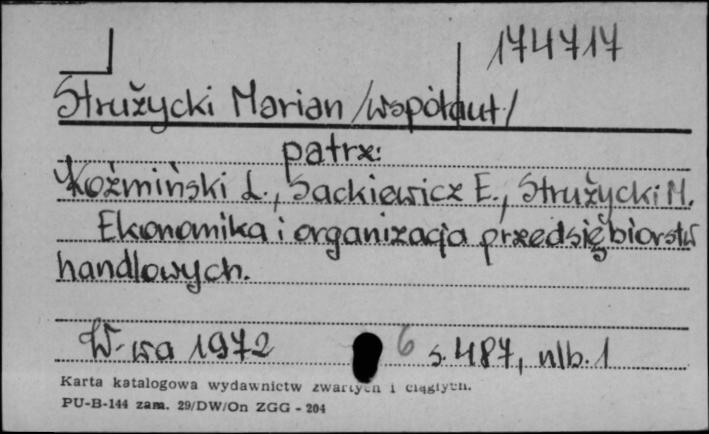 174717
Strużycki Marian /współaut/
patrz:
Koźmiński L., Sackiewicz E., Strużycki M.
Ekonomika i organizacja przedsiębiorstw
handlowych.
W-wa 1972 6 s. 487, nlb. 1
Karta katalogowa wydawnictw zwartych i ciągłych.
PU-B-144 zam. 29/DW/On ZGG - 204